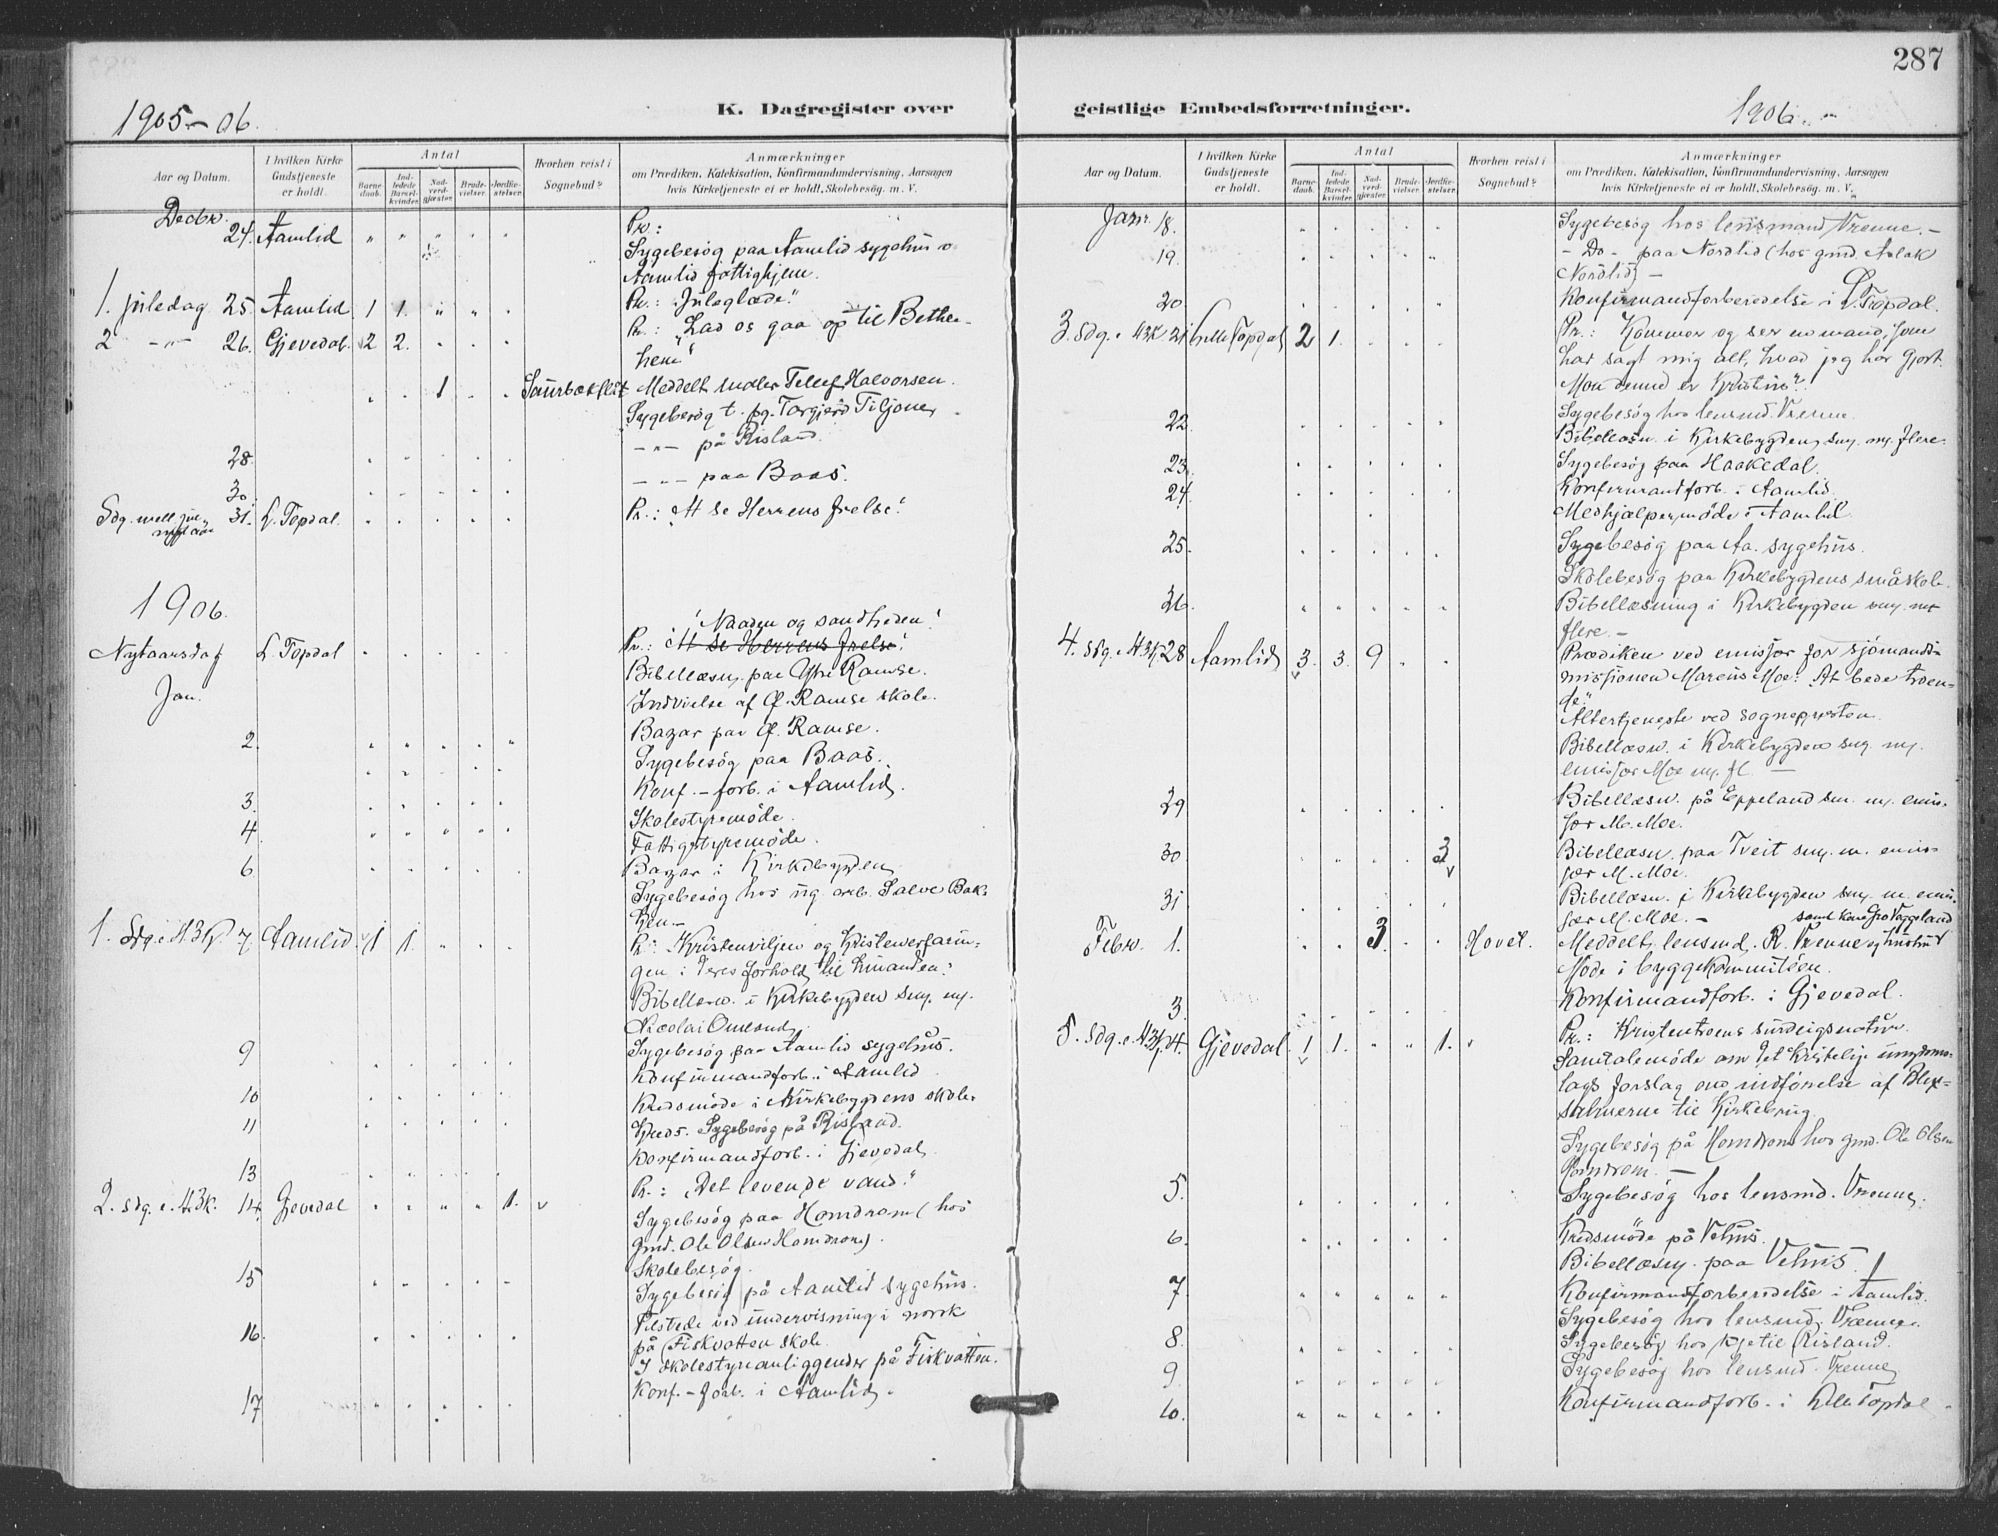 287
1905-06.
K. Dagregister over
geistlige Embedsforretninger.
1906.
Aar og Datum.
I hvilken Kirke Gudstjeneste er holdt.
Antal
Barnedaab.
Indledede Barselkvinder.
Nadverdgjæster.
Brudevielser.
Jordfæstelser.
Hvorhen reist i Sognebud?
Anmærkninger
om Prædiken, Katekisation, Konfirmandundervisning, Aarsagen
hvis Kirketjeneste ei er holdt, Skolebesøg, m. V.
Decbr.
24. Aamlid " " " " " Pr.:
Sygebesøg paa Aamlid sygehus o
Aamlid fattighjem.
1. juledag 25. Aamlid 1 1. " " Pr.: "Juleglæde."
2 -"- 26. Gjevedal. 2 2. Pr.: "Lad os gaa op til Bethle-
hem"
1 Meddelt Tellef Halvorsen.
Sygebesøg
-"- på Risland.
28.
-"- paa Baas.
30.
Sdg. mell. jul
nytaar 31. L. Topdal. Pr.: "At se Herrens frelse."
1906.
"Naaden og sandheden."
Nytaarsdag L. Topdal Pr.: "At se Herrens frelse."
Jan.
Bibellæsn. paa Ramse.
Indvielse af Ø. Ramse skole.
Bazar paa Ø. Ramse.
2.
Sygebesøg paa Baas.
Konf.-forb. i Aamlid.
3.
Skolestyremøde.
4.
Fattigstyremøde.
6
Bazar i Kirkebygden
Sygebesøg hos ug. arb. Salve Bak-
ken -
1. Sdg. e. H3K 7. Aamlid. 1 1. Pr.: "Kristenviljen og Kristenerfarin-
gen i deres forhold til
Bibellæsn. i Kirkebygden sm. m.
Nicolai
9
Sygebesøg paa Aamlid sygehus.
Konfirmandforb. i Aamlid
10
Kredsmøde i Kirkebygdens skole-
11
kreds. Sygebesøg på Risland.
Konfirmandforb. i Gjevedal.
13
2. sdg. e. H.3k. 14. Gjevedal 1. Pr.: "Det levende vand."
Sygebesøg paa Homdrom (hos
gmd. Ole Olsen Homdrom).
Skolebesøg.
15
Sygebesøg på Aamlid sygehus.
Tilstede ved undervisning i norsk
16.
på Fiskvatten skole.
I skolestyreanliggender på Fiskvatten.
17
Konf.-forb. i Aamlid.
Aar og Datum.
I hvilken Kirke Gudstjeneste er holdt.
Antal
Barnedaab.
Indledede Barselkvinder.
Nadverdgjæster.
Brudevielser.
Jordfæstelser.
Hvorhen reist i Sognebud?
Anmærkninger
om Prædiken, Katekisation, Konfirmandundervisning, Aarsagen
hvis Kirketjeneste ei er holdt, Skolebesøg, m. V.
Janr. 18. Sygebesøg hos lensmand Vrenne. -
19. - Do - paa Nordlid (hos gmd. Aslak
Nordlid) -
20 Konfirmandforberedelse i L. Topdal.
3. sdg. e. H3K 21 Lille Topdal 2 1. Pr.: "Kommer og ser en mand, som
har sagt mig alt, hvad jeg har gjort.
Mon denne er Kristus".
22 Sygebesøg hos lensmd. Vrenne.
Bibellæsn. i Kirkebygden sm. m. flere.
23. Sygebesøg paa Haakedal.
24. Konfirmandforb. i Aamlid.
Medhjælpermøde i Aamlid
25. Sygebesøg paa Aa. sygehus.
Skolebesøg paa Kirkebygdens småskole.
26. Bibellæsning i Kirkebygden sm. m.
flere. -
4. Sdg. e. H3K 28 Aamlid 3. 3. 9 Prædiken ved emissær for sjømands-
missionen Marcus Moe: "At bede troen-
de".
Altertjeneste ved sognepresten.
Bibellæsn. i Kirkebygden sm. m.
emissær Moe m. fl. -
29 Bibellæsn. på Eppeland sm. m. emis-
sær M. Moe.
30 3 Bibellæsn. paa Tveit sm. m. emis-
sær M. Moe.
31 Bibellæsn. i Kirkebygden sm. m. emis-
sær M. Moe. - samt kone Gro Væggeland
Febr. 1. 3. Hovet. Meddelt lensmd. R. Vrenne og hustru
Møde i byggekommitéen.
3. Konfirmandforb. i Gjevedal.
5. sdg. e. H3K. 4. Gjevedal 1 1. 1. Pr.: Kristentroens
Samtalemøde om det kristelige ungdoms-
lags forslag om indførelse af Blix-
salmerne til Kirkebrug.
Sygebesøg på Homdrom hos gmd. Ole Olsen
Homdrom. -
5. Sygebesøg hos lensmd. Vrenne.
6. Kredsmøde på Vehus.
Bibellæsn. paa Vehus.
7 Konfirmandforberedelse i Aamlid.
Sygebesøg hos lensmd. Vrenne.
8. Sygebesøg hos Kjetil Risland.
9. Sygebesøg hos lensmd. Vrenne
10. Konfirmandforb. i Lille Topdal.